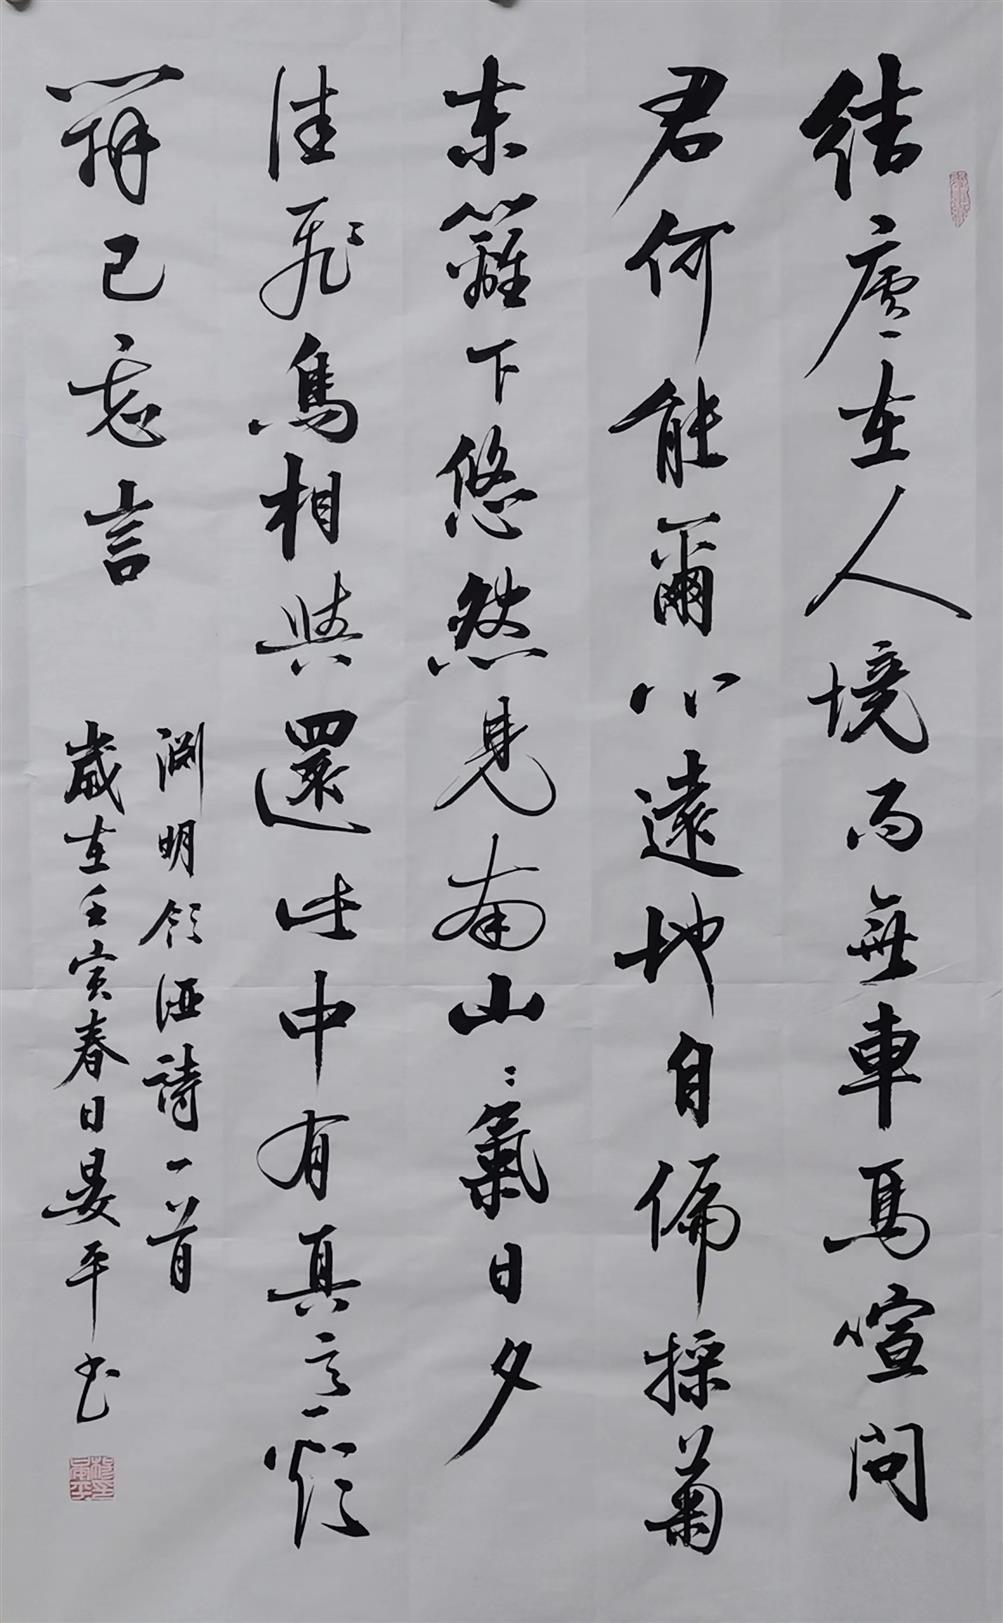 結廬在人境而無車馬喧問
君何能爾心遠地自偏採菊
東籬下悠然見南山〻氣日夕
佳飛鳥相與還此中有真意欲
辨已忘言
淵明飲酒詩一首
歲在壬寅春日晏平书